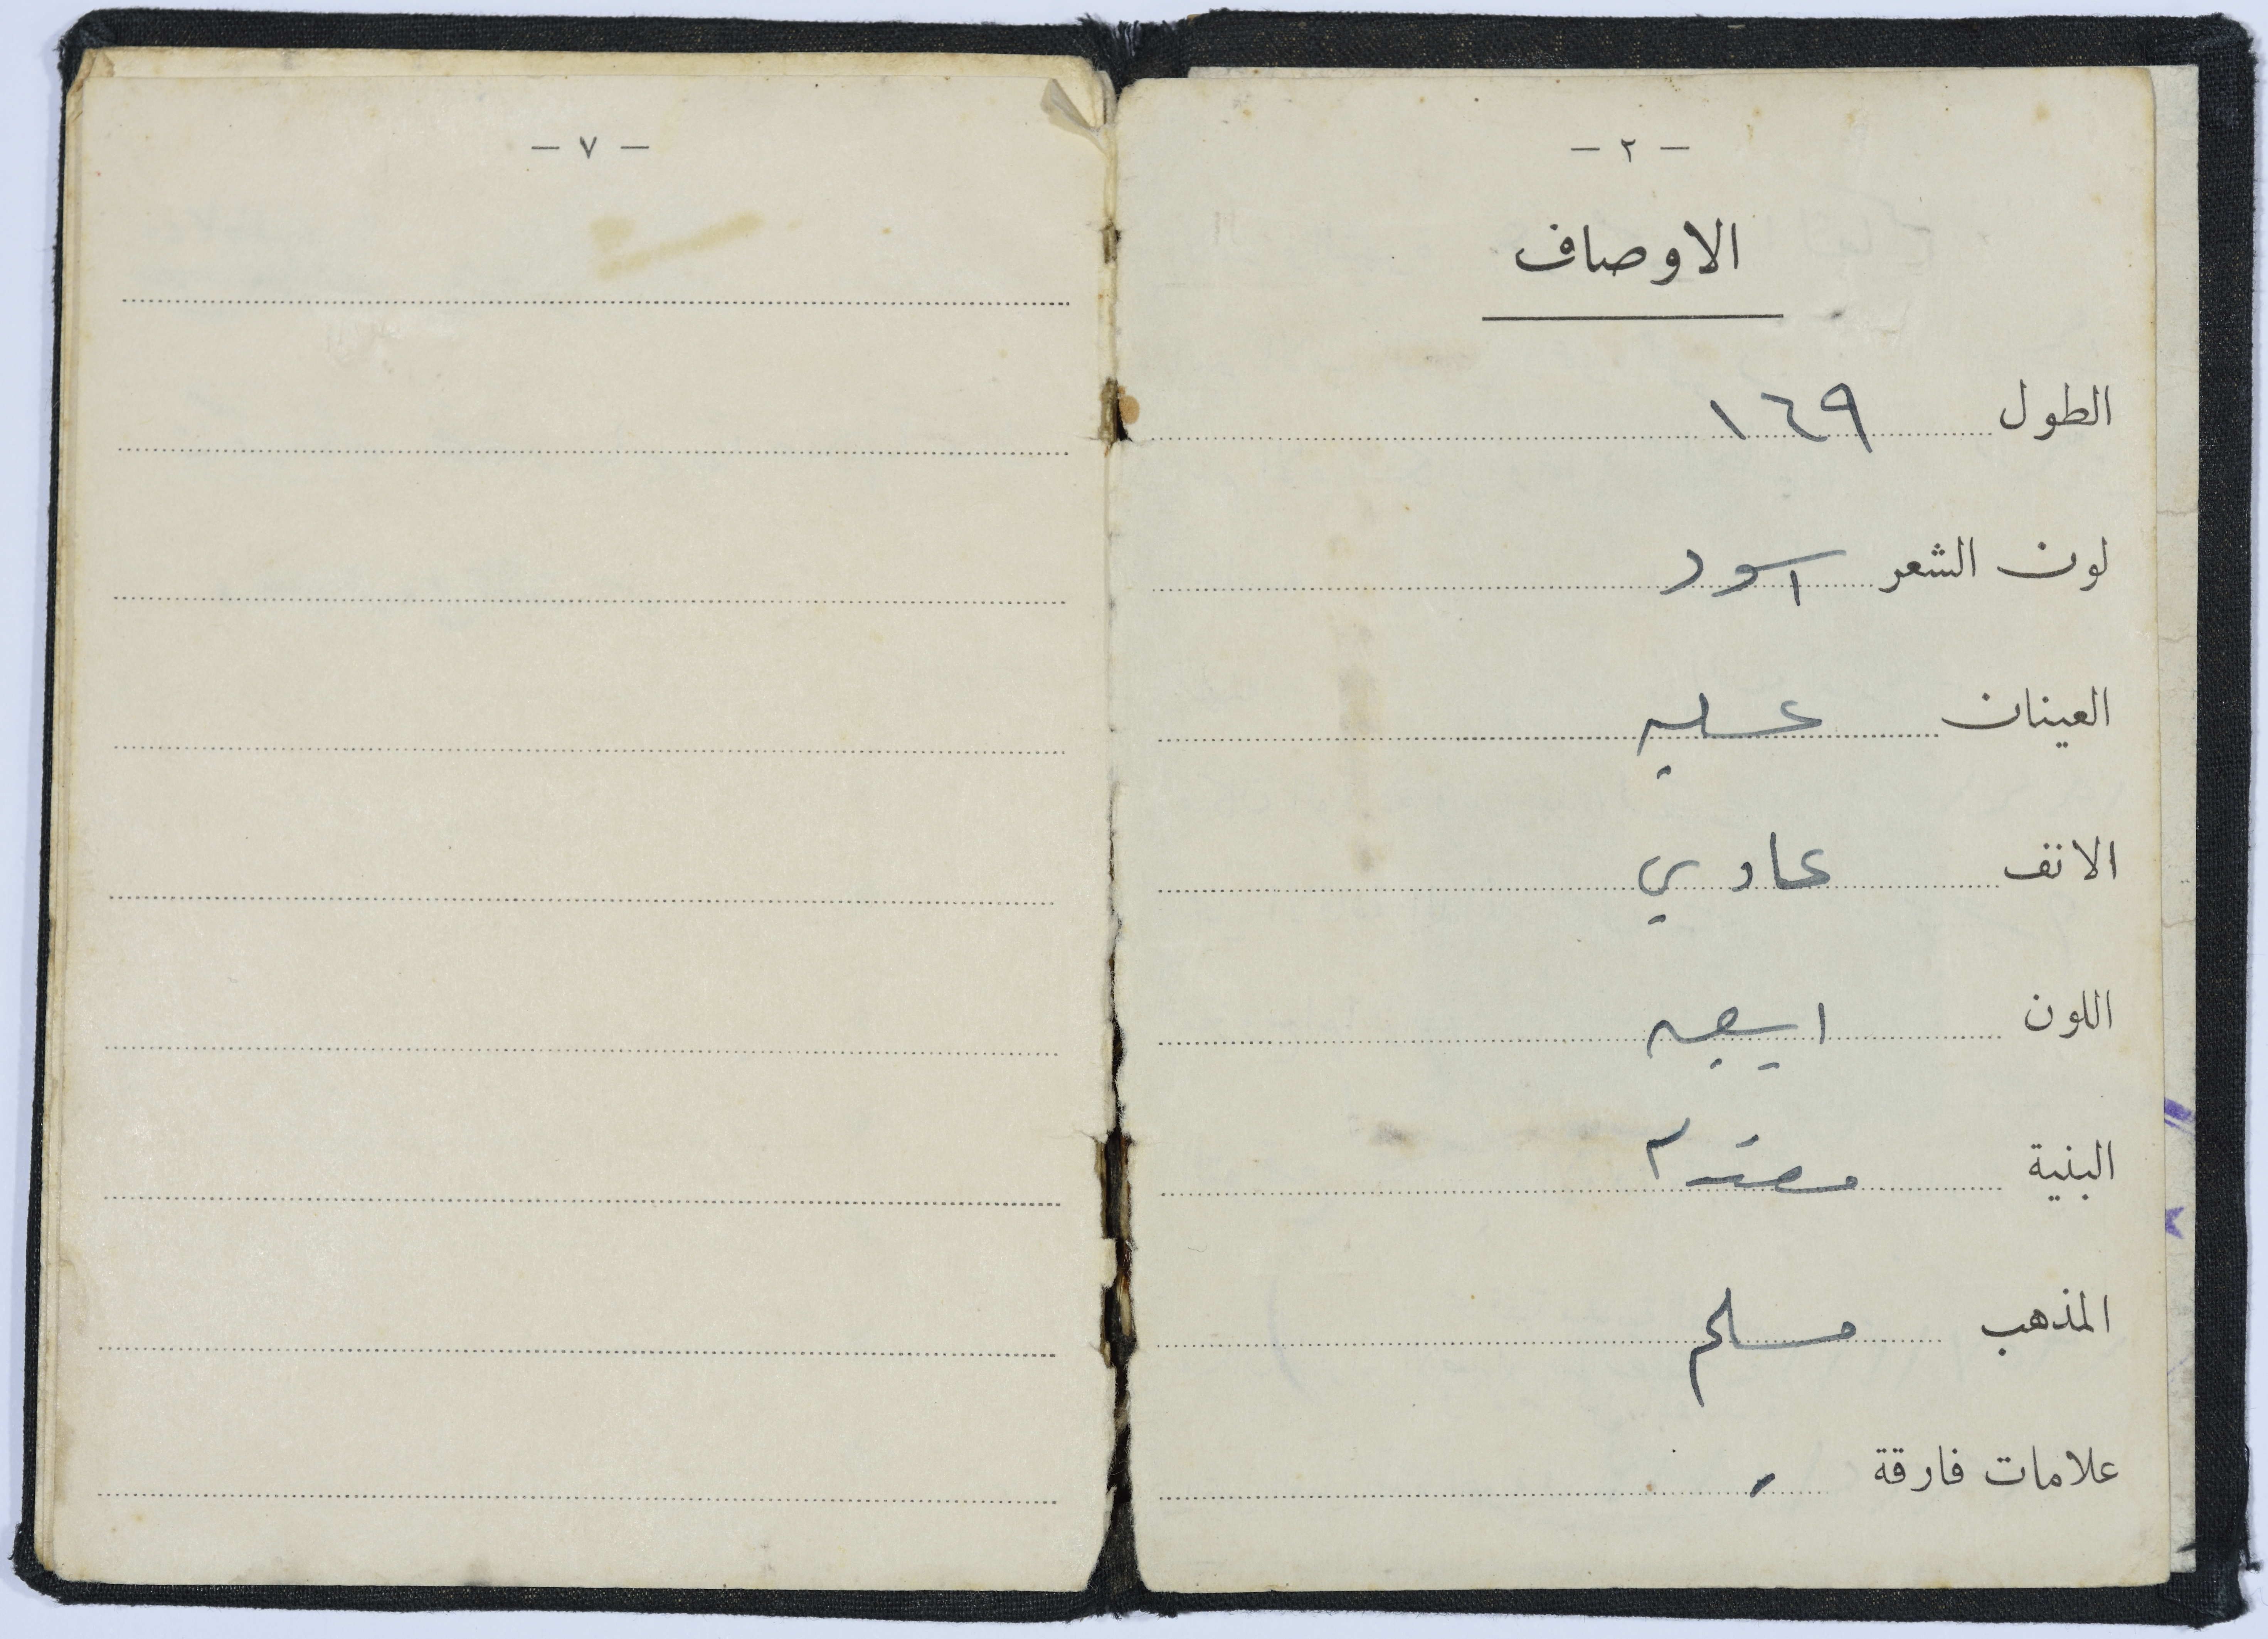 - ٢ -
الاوصاف
الطول ١٦٩
لون الشعر اسود
العينان عسلي
الانف عادي
اللون ابيض
البنية
المذهب مسلم
علامات فارقة
- ٧ -